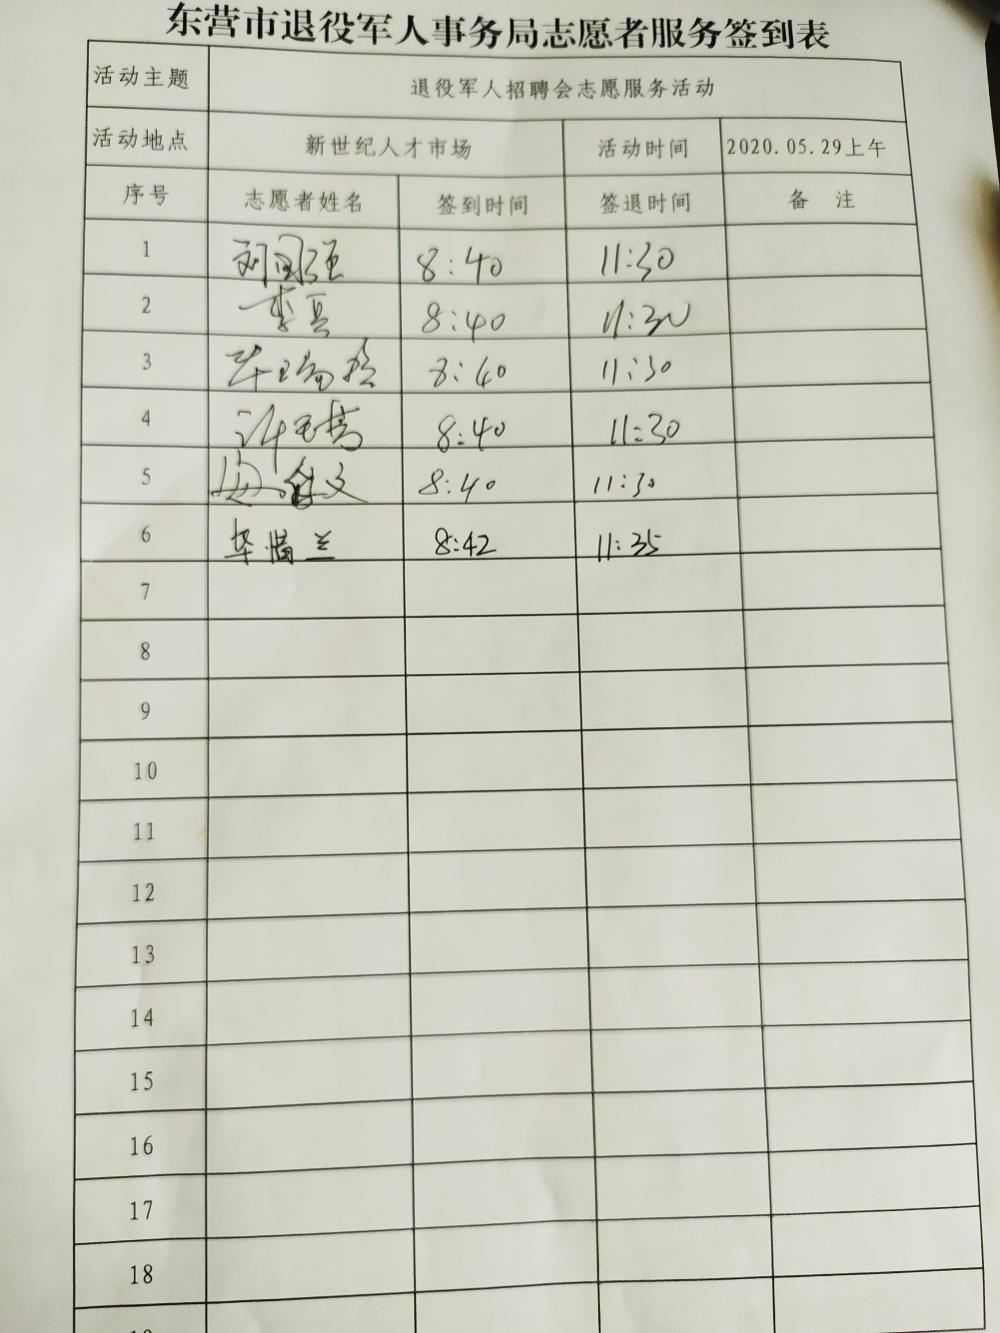 东营市退役军人事务局志愿者服务签到表
活动主题 退役军人招聘会志愿服务活动
活动地点 新世纪人才市场 活动时间 2020.05.29上午
序号 志愿者姓名 签到时间 签退时间 备 注
1 刘国强 8:40 11:30
2 8:40 11:30
3 8:40 11:30
4 8:40 11:30
5 8:40 11:30
6 8:42 11:35
7
8
9
10
11
12
13
14
15
16
17
18